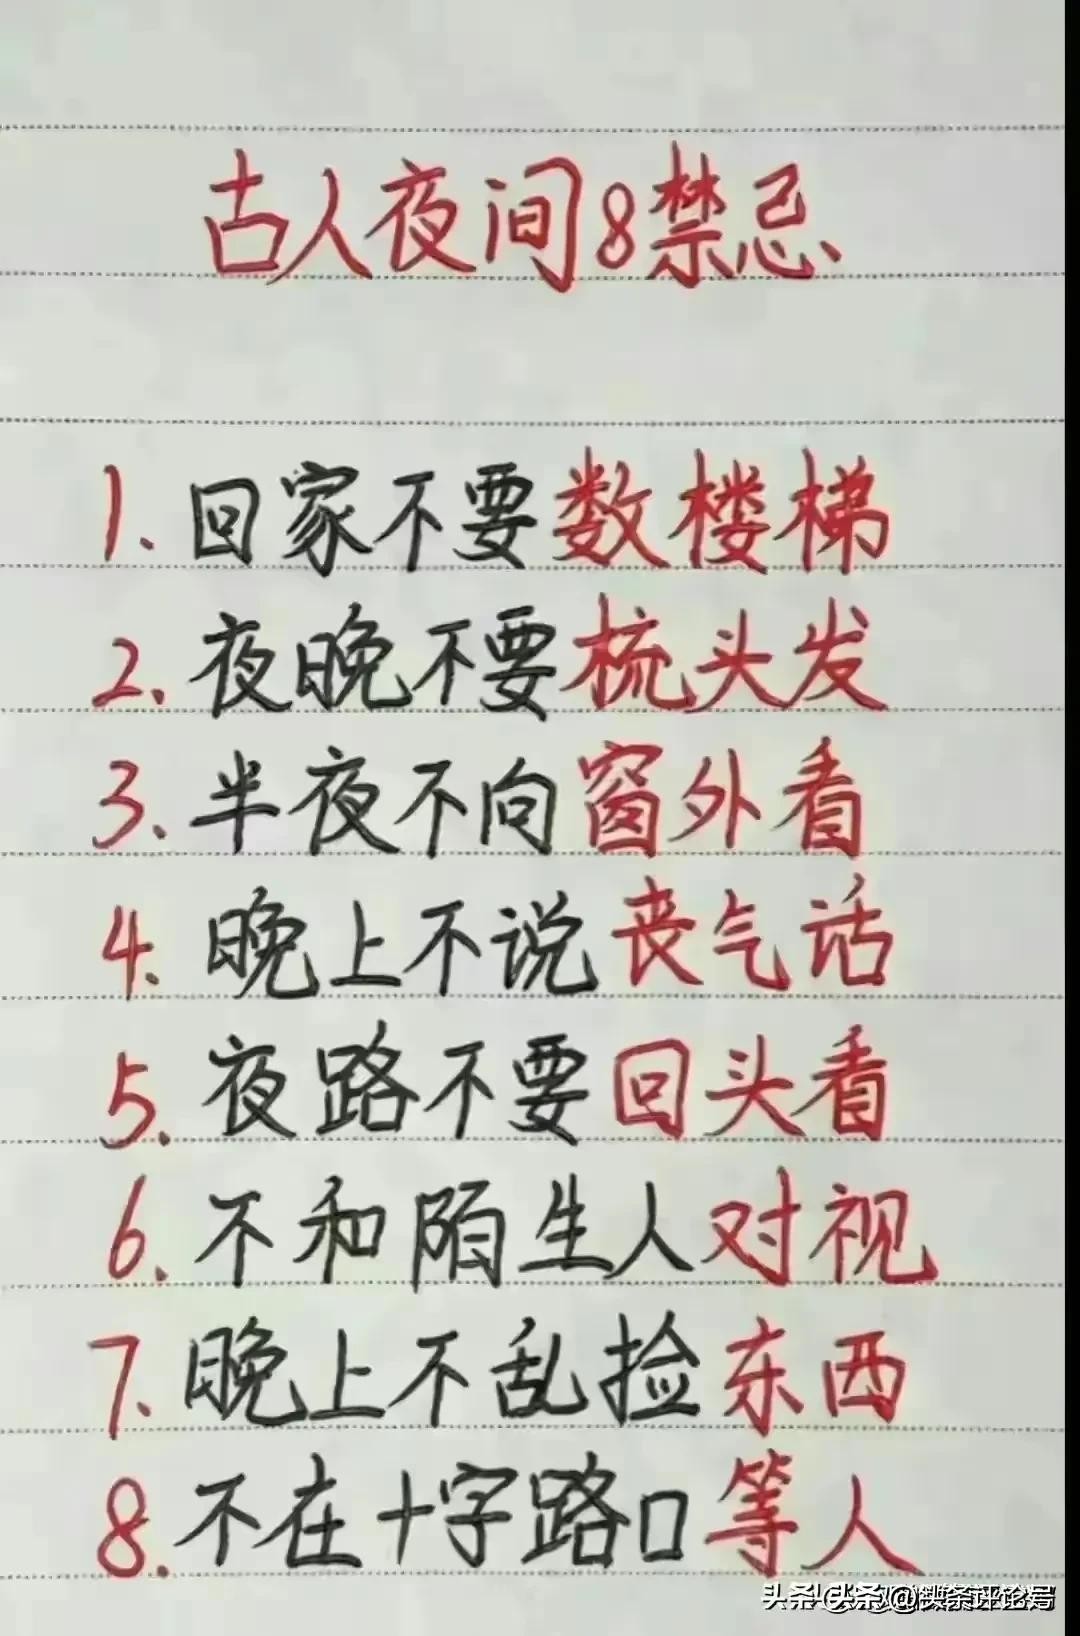 古人夜间8禁忌
1.回家不要数楼梯
2.夜晚不要梳头发
3.半夜不向窗外看
4.晚上不说丧气话
5.夜路不要回头看
6.不和陌生人对视
7.晚上不乱捡东西
8.不在十字路口等人
头条